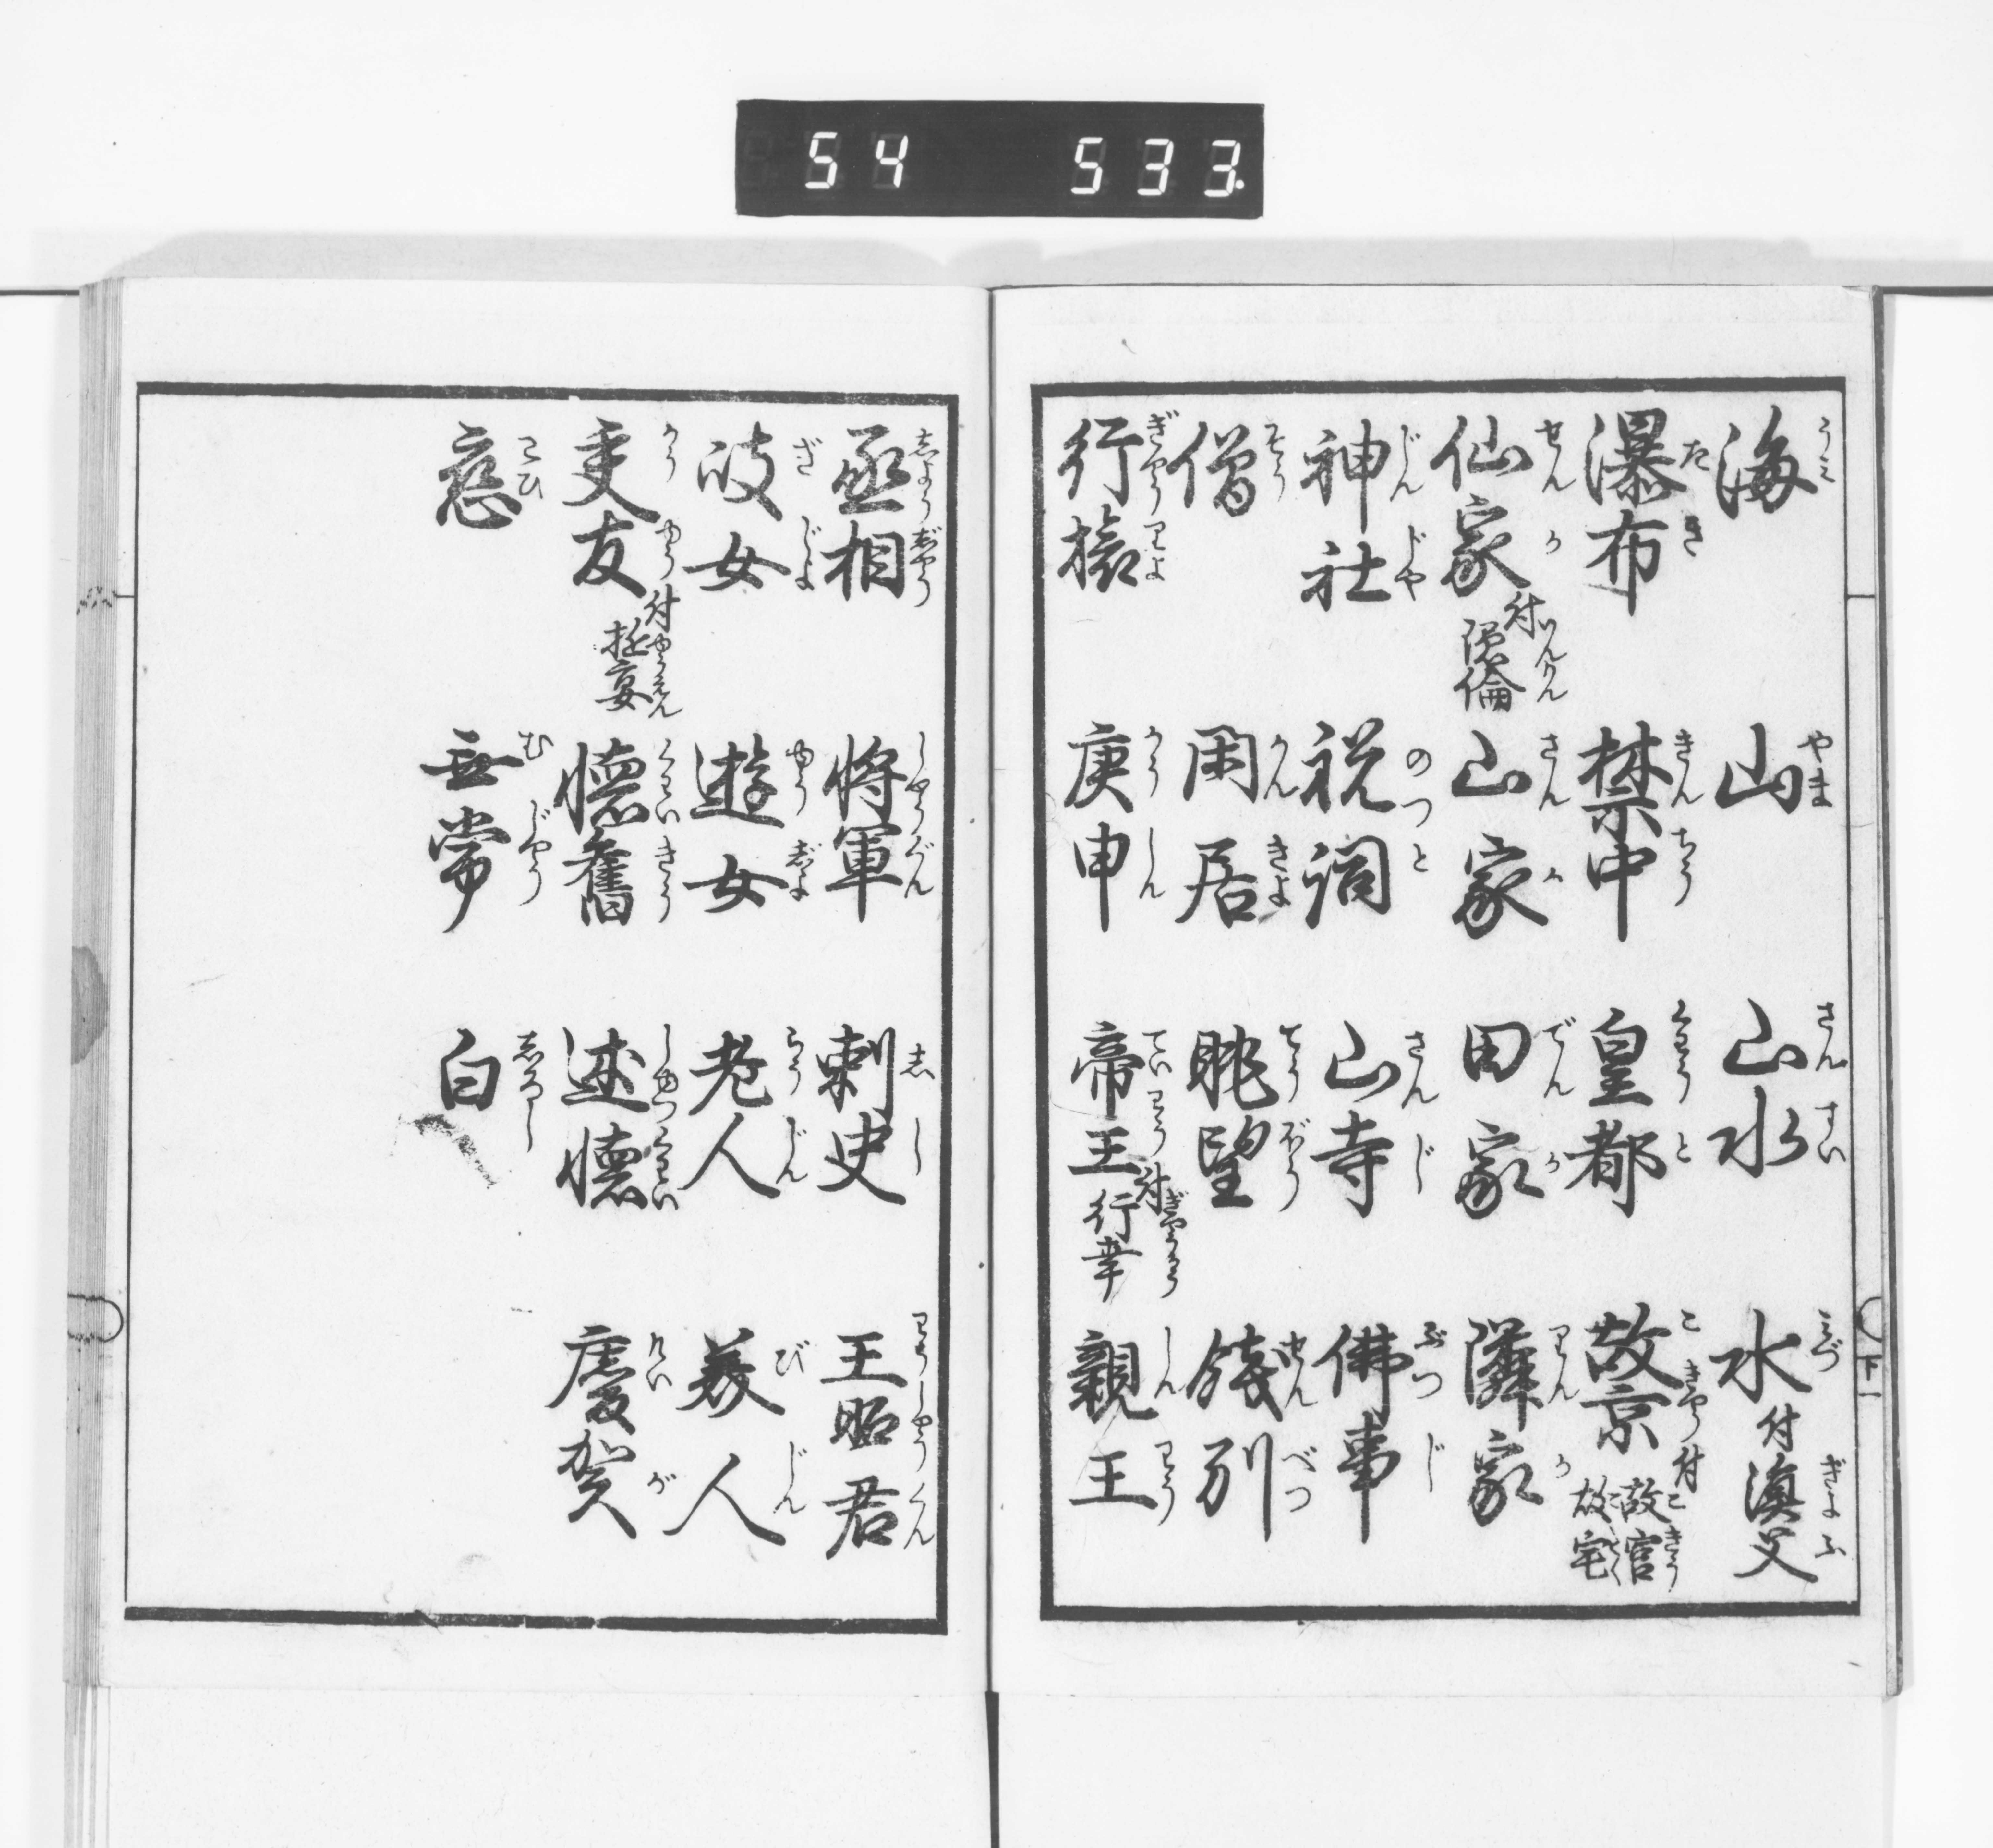 54 533.
海 山 山水 水付漁父
瀑布 禁中 皇都 故京付故宮故宅
仙家付隠倫 山家 田家 隣家
神社 祝詞 山寺 佛事
僧 閑居 眺望 餞別
行旅 庚申 帝王付行幸 親王
下一
丞相 将軍 刺史 王昭君
妓女 遊女 老人 美人
交友付遊宴 懐舊 述懐 慶賀
恋 無常 白